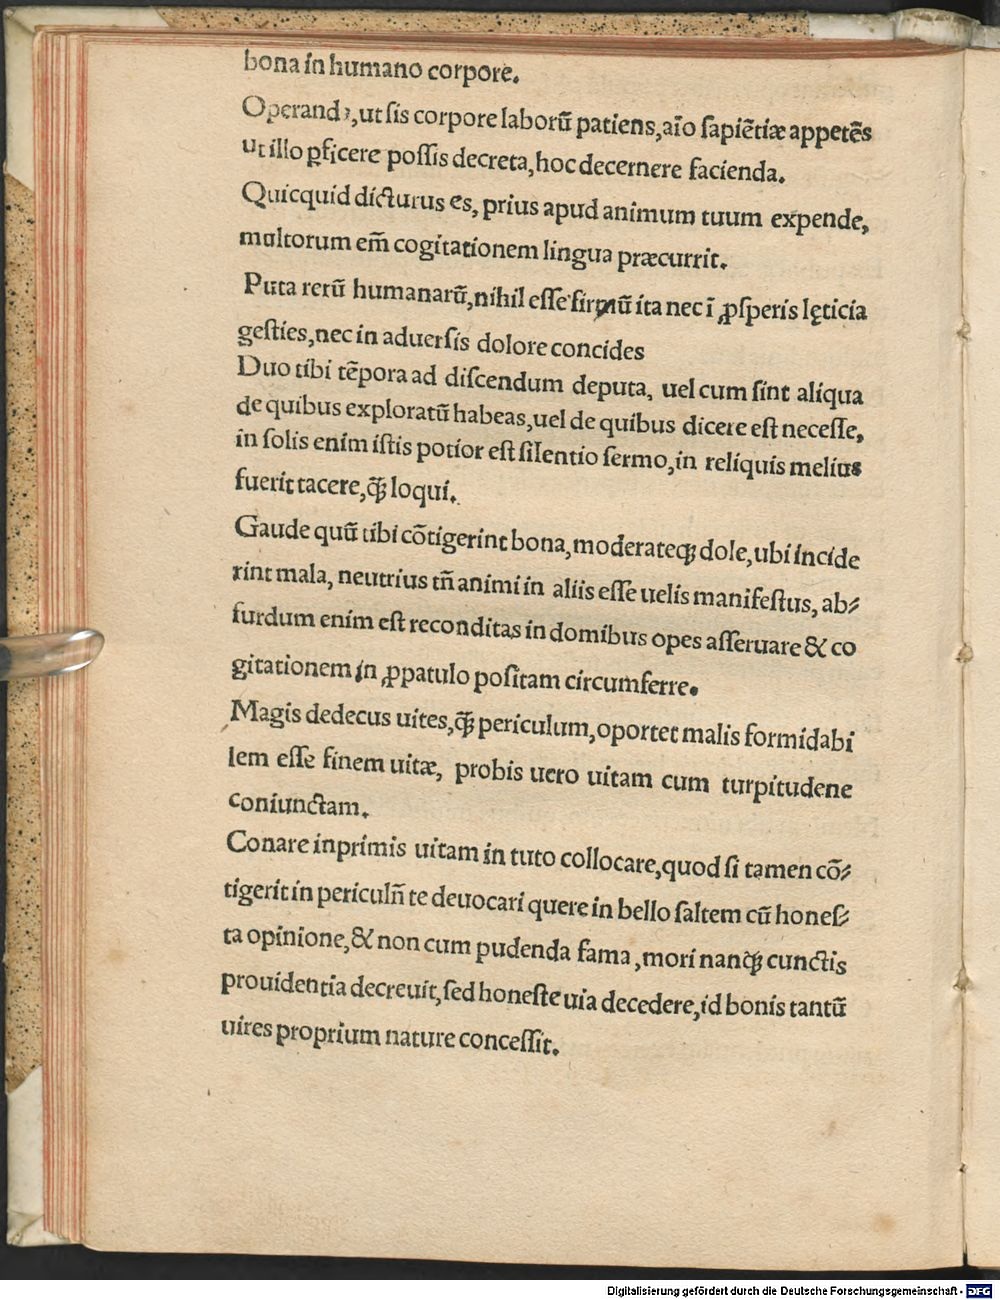 bona in humano corpore.
Operandꝫ, ut sis corpore laborū patiens, aīo sapiētiæ appetēs
ut illo ꝑficere possis decreta, hoc decernere facienda.
Quicquid dicturus es, prius apud animum tuum expende,
multorum em̄ cogitationem lingua præcurrit.
Puta rerū humanarū, nihil esse firmū ita nec ī ꝓsperis lęticia
gesties, nec in aduersis dolore concides
Duo tibi tēpora ad discendum deputa, uel cum sint aliqua
de quibus exploratū habeas, uel de quibus dicere est necesse,
in solis enim istis potior est silentio sermo, in reliquis melius
fuerit tacere, q̄ꝫ loqui.
Gaude quū tibi cōtigerint bona, moderateqꝫ dole, ubi incide
rint mala, neutrius tn̄ animi in aliis esse uelis manifestus, ab⸗
surdum enim est reconditas in domibus opes asseruare & co
gitationem in ꝓpatulo positam circumferre.
Magis dedecus uites, q̄ꝫ periculum, oportet malis formidabi
lem esse finem uitæ, probis uero uitam cum turpitudene
coniunctam.
Conare inprimis uitam in tuto collocare, quod si tamen cō⸗
tigerit in periculn̄ te deuocari quere in bello saltem cū hones⸗
ta opinione, & non cum pudenda fama, mori nanqꝫ cunctis
prouidentia decreuit, sed honeste uia decedere, id bonis tantū
uires proprium nature concessit.
Digitalisierung gefördert durch die Deutsche Forschungsgemeinschaft - DFG